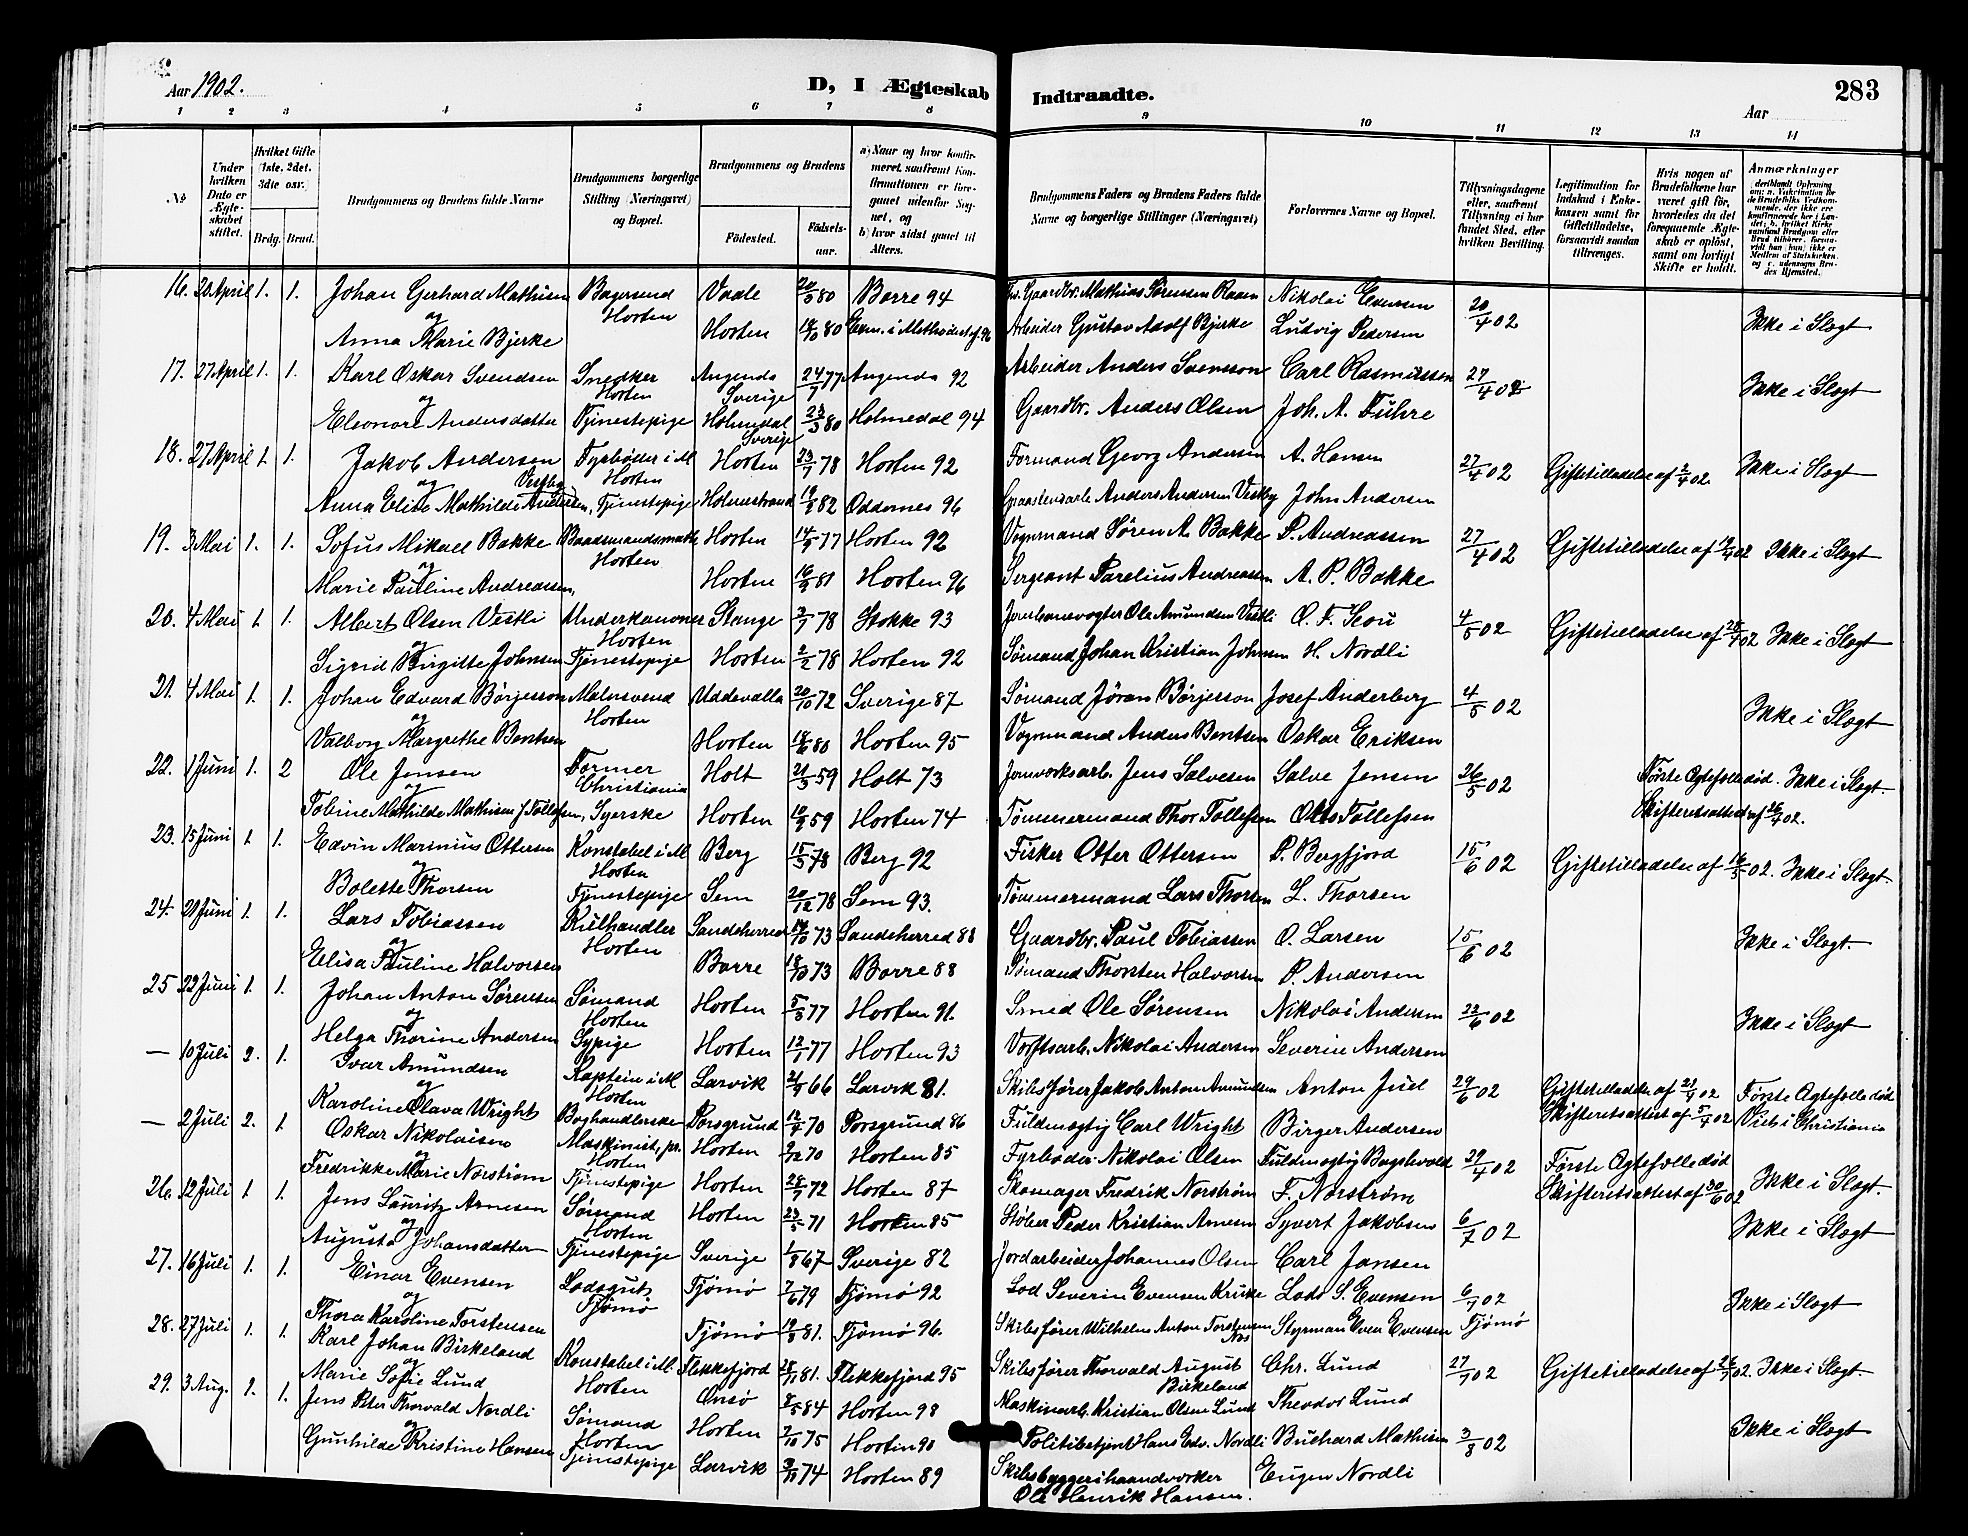 Aar 1902.
D, I Ægteskab Indtraadte.
283
Aar
1 2 3 4 5 6 7 8 9 10 11 12 13 14
No
Under hvilken Dato er Ægteskabet stiftet.
Hvilket Gifte (1ste, 2det, 3die osv.)
Brdg. Brud.
Brudgommens og Brudens fulde Navne
Brudgommens borgerlige Stilling (Næringsvei) og Bopæl.
Brudgommens og Brudens
Fødested.
Fødsels-aar.
a) Naar og hvor konfirmeret, saafremt Konfirmationen er foregaaet udenfor Sognet, og
b) hvor sidst gaaet til Alters.
Brudgommens Faders og Brudens Faders fulde Navne og borgerlige Stillinger (Næringsvei)
Forlovernes Navne og Bopæl.
Tillysningsdagene eller, saafremt Tillysning ei har fundet Sted, efter hvilken Bevilling.
Legitimation for Indskud i Enkekassen samt for Giftettilladelse, forsaavidt saadan tiltrænges.
Hvis nogen af Brudefolkene har været gift før, hvorledes da det foregaaende Ægteskab er opløst, samt om lovligt Skifte er holdt.
Anmærkninger
16. 20 April 1. 1. Johan Gerhard Mathisen Bagersvend Horten Vaale 20/5 80 Borre 94 Gaardbr. Mathias Sørensen Raaen Nikolai Evensen 20/4 02 Ikke i Slægt
og
Anna Marie Bjerke Horten 18/10 80 Arbeider Gustav Adolf Bjerke Ludvig Pedersen
17. 27 April 1. 1. Karl Oskar Svendsen Snedker Horten Angends Sverige 24/7 77 Angends 92 Arbeider Anders Svensson Carl Rasmussen 27/4 02 Ikke i Slægt
og
Eleonore Andersdatter Tjenestepige Holmedal Sverige 23/3 80 Holmedal 94 Gaardbr. Anders Olsen Joh. A. Fuhre
18. 27 April 1. 1. Jakob Andersen Fyrbøder i M Horten Horten 23/7 78 Horten 92 Formand Georg Andersen A. Hansen 27/4 02 Giftetilladelse af 2/4 02. Ikke i Slægt
og Vestby
Anna Elise Mathilde Andersen, Tjenestepige Holmestrand 82 Oddernes 96 Anders Andersen Vestby John Andersen
19. 3 Mai 1. 1. Sofus Mikael Bakke Baadsmandsmath Horten Horten 14/9 77 Horten 92 Vognmand Søren A. Bakke P. Andreassen 27/4 02 Giftetilladelse af 19/4 02 Ikke i Slægt
og
Marie Pauline Andreassen, Horten 16/9 81 Horten 96 Sergeant Parelius Andreassen A. P. Bakke
20. 4 Mai 1. 1. Albert Olsen Vestli Underkanoner Horten Stange 3/7 78 Stokke 93 Jernbanevogter Ole Amundsen Vestli O. F. Scou 4/5 02 Giftetilladelse af 25/4 02 Ikke i Slægt
og
Sigrid Birgitte Johnsen Tjenestepige Horten 2/2 78 Horten 92 Sømand Johan Kristian Johnsen H. Nordli
21. 4 Mai 1. 1. Johan Edvard Børjesson Malersvend Horten Uddevalla 20/10 72 Sverige 87 Sømand Jøran Børjesson Josef Anderberg 4/5 02 Ikke i Slægt
og
Valborg Margrethe Bentsen Horten 18/6 80 Horten 95 Vognmand Anders Bentsen Oskar Eriksen
22. 1 Juni 1. 2 Ole Jensen Former Christiania Holt 21/3 59 Holt 73 Jernverksarb. Jens Salvesen Salve Jensen 26/5 02 Første Ægtefælle død. Ikke i Slægt.
og
Tobine Mathilde Mathisen f. Tollefsen, Syerske Horten 10/9 59 Horten 74 Tømmermand Thor Tollefsen Tollefsen Skifteretsattest af 26/4 02.
23. 15 Juni 1. 1. Edvin Marinius Ottersen Konstabel i M Horten Berg 15/5 78 Berg 92 Fisker Otter Ottersen P. Bergfjord 15/6 02 Giftetilladelse af 16/5 02. Ikke i Slægt.
og
Bolette Thorsen Tjenestepige Sem 20/12 78 Sem 93. Tømmermand Lars Thorsen L. Thorsen
24. 21 Juni 1. 1. Lars Tobiassen Kulhandler Horten Sandeherred 14/10 73 Sandeherred 88 Gaardbr. Paul Tobiassen O. Larsen 15/6 02 Ikke i Slægt.
og
Elisa Pauline Halvorsen Borre 18/10 73 Borre 88 Sømand Thorsten Halvorsen P. Andersen
25 22 Juni 1. 1. Johan Anton Sørensen Sømand Horten Horten 5/3 77 Horten 91. Smed Ole Sørensen Nikolai Andersen 22/6 02 Ikke i Slægt
og
Helga Thorine Andersen Sypige Horten 12/1 77 Horten 93 Verftsarb. Nikolai Andersen Severin Andersen
— 10 Juli 2. 1. Ivar Amundsen Kaptein i M Horten Larvik 21/9 66 Larvik 81. Skibsfører Jakob Anton Amundsen Anton Juel 29/6 02 Giftetilladelse af 21/4 02 Første Ægtefælle død
og
Karoline Olava Wright Boghandlerske Porsgrund 12/4 70 Porsgrund 86 Fuldmægtig Carl Wright Birger Andersen Skifteretsattest af 5/4 02 Viet i Christiania
— 2 Juli 2. 1. Oskar Nikolaisen Maskinist, pr. Horten Horten 9/12 70 Horten 85 Fyrbøder Nikolai Olsen Fuldmægtig Bogshvold 29/4 02 Første Ægtefælle død
og
Fredrikke Marie Norstrøm Tjenestepige Horten 28/7 72 Horten 87 Skomager Fredrik Norstrøm F. Norstrøm Skifteretsattest af 30/6 02 Ikke i Slægt.
26. 12 Juli 1. 1. Jens Lauritz Arnesen Sømand Horten Horten 23/5 71 Horten 85 Støber Peder Kristian Arnesen Syvert Jakobsen 6/7 02 Ikke i Slægt
og
Augusta Johansdatter Tjenestepige Sverige 1/8 67 Sverige 82 Jordarbeider Johannes Olsen Carl Jansen
27. 16 Juli 1. 1. Einar Evensen Lodsgut Tjømø Tjømø 7/6 79 Tjømø 92 Lod Severin Evensen Krukke Lods S. Evensen 6/7 02 Tjømø Ikke i Slægt
og
Thora Karoline Torstensen Tjømø 19/8 81. Tjømø 96. Skibsfører Wilhelm Anton Torstensen Styrman Even Evensen
28. 27 Juli 1. 1. Karl Johan Birkeland Konstabel i M. Horten Flekkefjord 28/11 81. Flekkefjord 95 Skibsfører Thorvald August Birkeland Chr. Lund 27/7 02 Giftetilladelse af 26/7 02. Ikke i Slægt.
og
Marie Sofie Lund Onsø 8/5 84 Horten 98 Maskinarb. Kristian Olsen Lund Theodor Lund
29. 3 Aug. 1. 1. Jens Peter Thorvald Nordli Sømand Horten Horten 7/10 75 Horten 90 Politibetjent Hans Edv. Nordli Buchard Mathisen 3/8 02 Ikke i Slægt
og
Gunhilde Kristine Hansen Tjenestepige Larvik 3/10 74 Horten 89 Skibsbyggerihaandverker Ole Henrik Hansen. Eugen Nordli